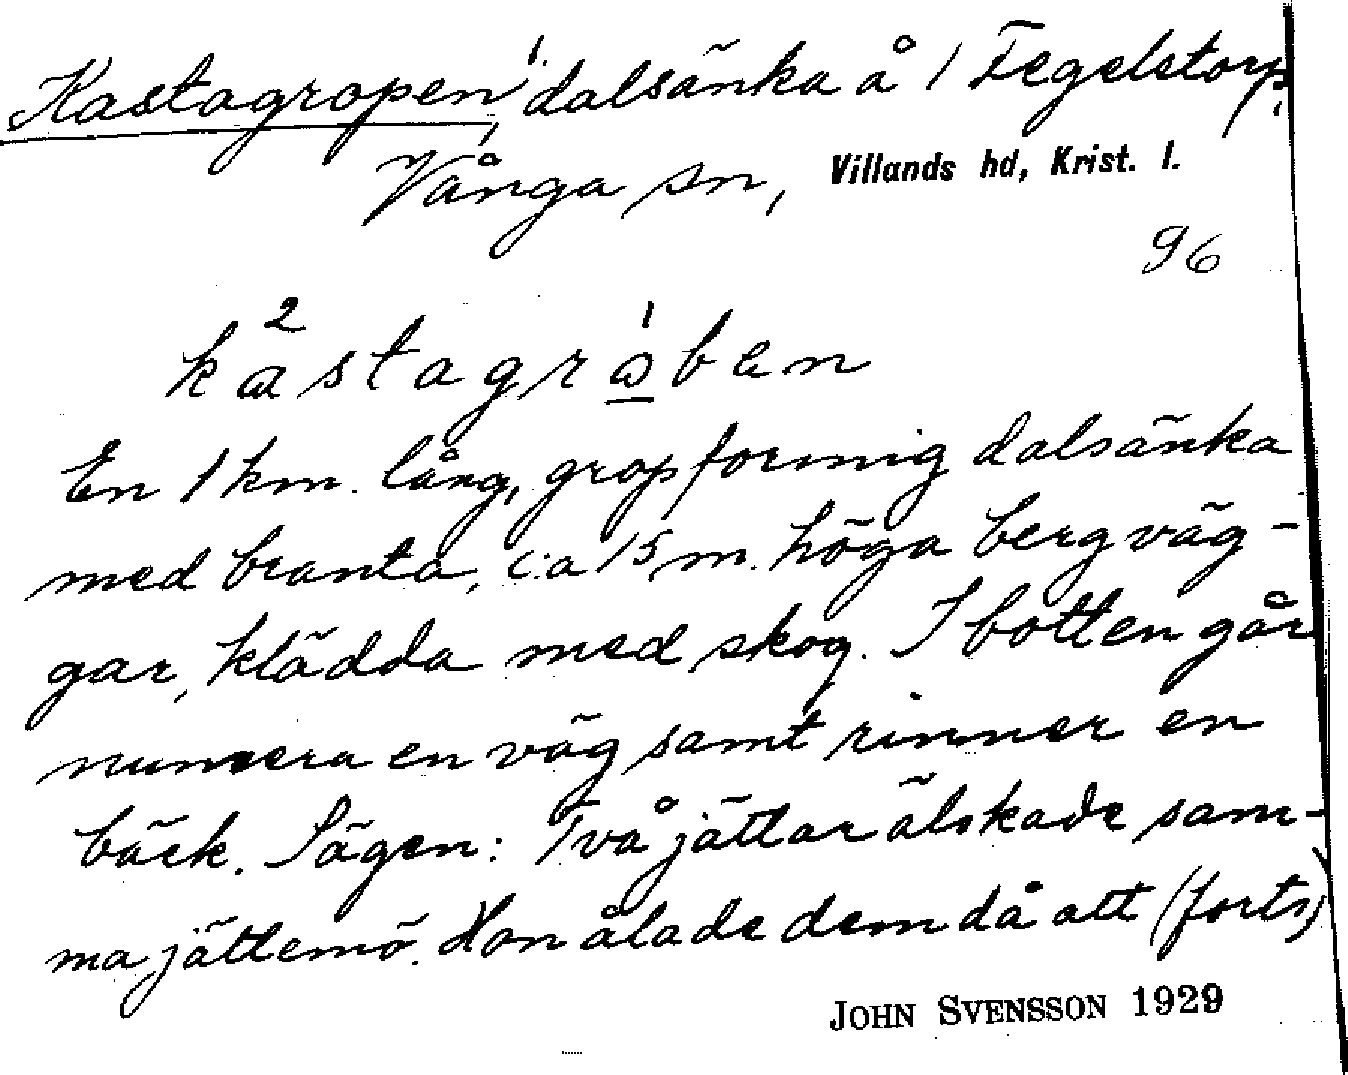 Kastagropen, dalsänka å 1 Fegelstorp,
Vånga sn, Villands hd, Krist. l.
96
kastagroben
En 1 km. lång, gropformig dalsänka
med branta, c:a 15 m. höga bergväg-
gar, klädda med skog. I botten går
numera en väg samt rinner en
bäck. Sägen: Två jättar älskade sam-
ma jättemö. Hon ålade dem då att (forts)
JOHN SVENSSON 1929